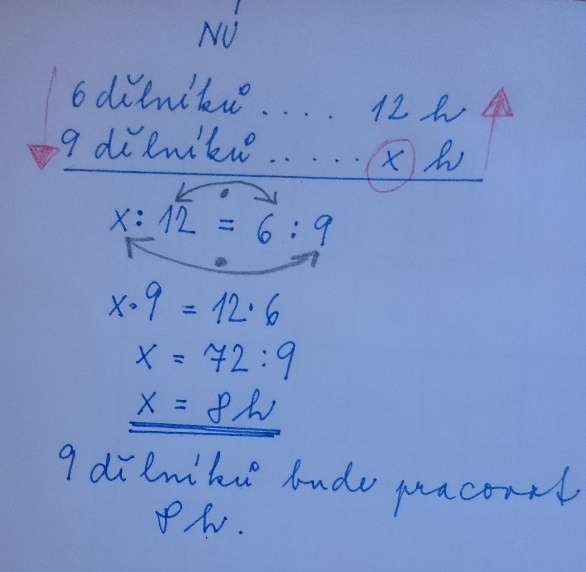 NÚ
6 dělníků .... 12 h
9 dělníků ..... x h
x : 12 = 6 : 9
x · 9 = 12 · 6
x = 72 : 9
x = 8 h
9 dělníků bude pracovat
8 h.